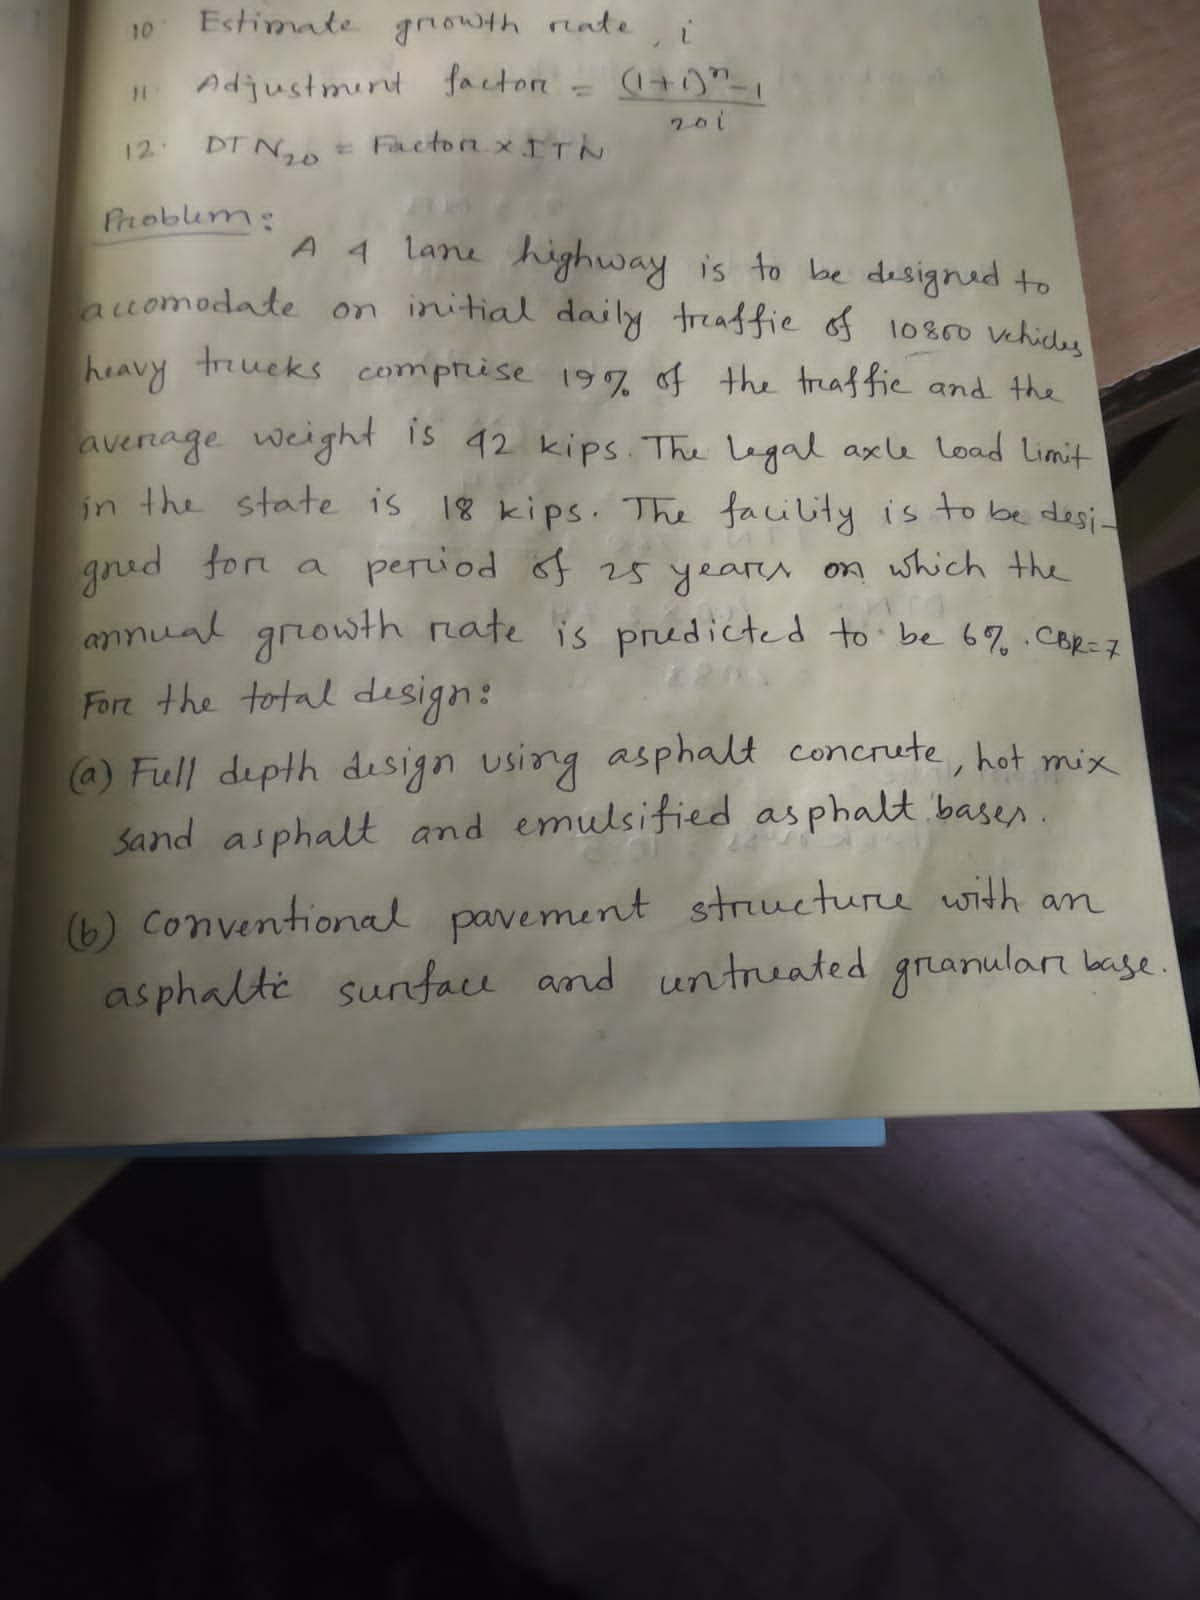 10. Estimate growth rate, i
11. Adjustment factor = (1+i)ⁿ-1 / 20i
12. DTN₂₀ = Factor x ITN
Problem:
A 4 lane highway is to be designed to
accomodate on initial daily traffic of 10800 vehicles
heavy trucks comprise 19% of the traffic and the
average weight is 42 kips. The legal axle load limit
in the state is 18 kips. The facility is to be desi-
gned for a period of 25 years on which the
annual growth rate is predicted to be 6%. CBR=7
For the total design:
(a) Full depth design using asphalt concrete, hot mix
sand asphalt and emulsified asphalt bases.
(b) Conventional pavement structure with an
asphaltic surface and untreated granular base.